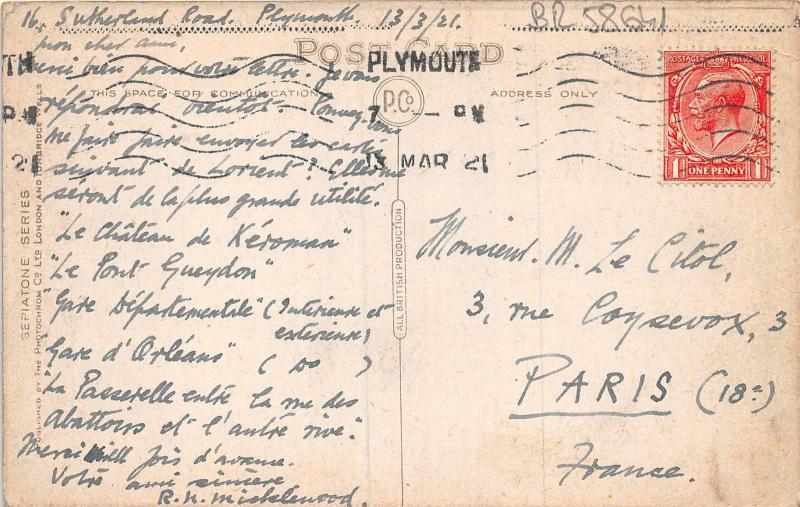 16, Sutherland Road. Plymouth. 13/3/21.
BR 58641
mon cher ami,
POST CARD
PLYMOUTH
TH
merci bien pour votre lettre. Je vous
THIS SPACE FOR COMMUNICATION
P.Co
ADDRESS ONLY
POSTAGE REVENUE
répondrai bientôt. Pouvez vous
7 PM
PM
me faire faire envoyer les cartes
suivant de Lorient? Elles me
13 MAR 21
21
1 ONE PENNY 1
seront de la plus grande utilité.
"Le Château de Kéroman"
"Le Pont Gueydon"
"Gare Départementale" (Intérieure et
extérieure)
"Gare d'Orléans" ( Do )
"La Passerelle entre la rue des
Abattoirs et l'autre rive."
Merci mille fois d'avance.
Votre ami sincère
R. N. Micklewood.
SEPIATONE SERIES
PUBLISHED BY THE PHOTOCHROM CO LTD LONDON AND TUNBRIDGE WELLS
ALL BRITISH PRODUCTION
Monsieur. M. Le Citol,
3, rue Coysevox, 3
PARIS (18e)
France.